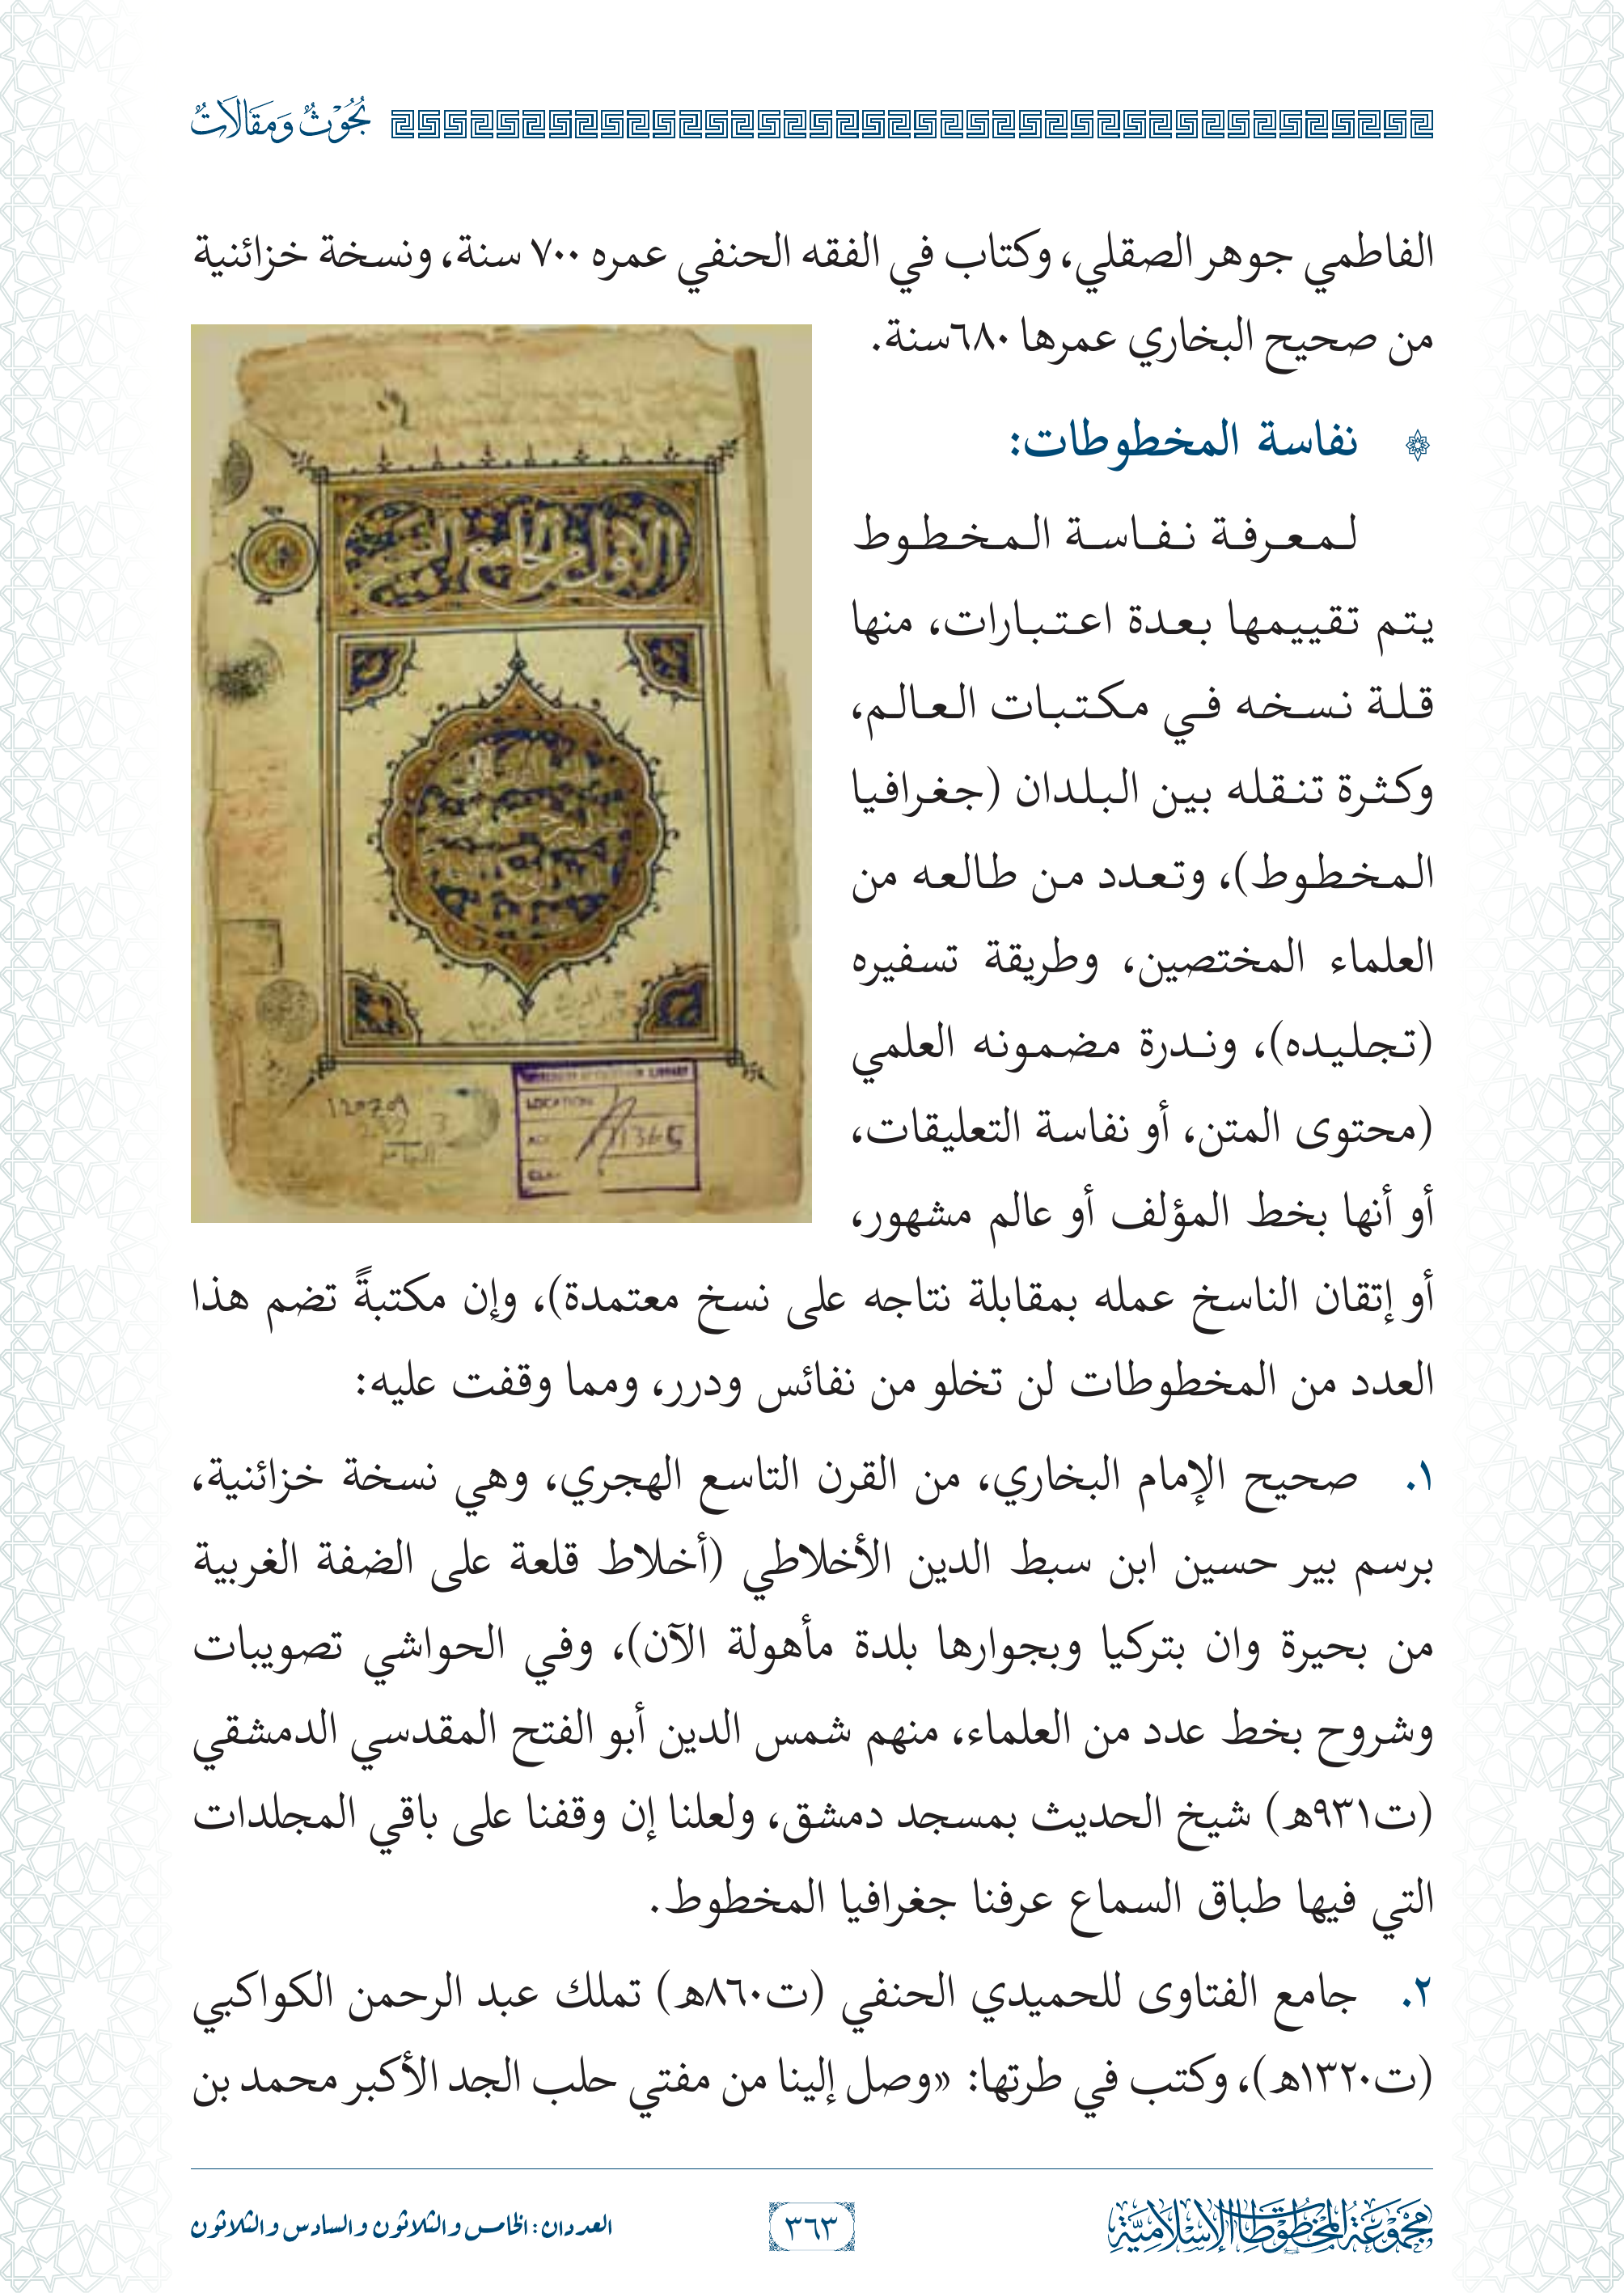 بُحُوْثٌ وَمَقَالَاتٌ
الفاطمي جوهر الصقلي، وكتاب في الفقه الحنفي عمره ٧٠٠ سنة، ونسخة خزائنية
من صحيح البخاري عمرها ٦٨٠سنة.
نفاسة المخطوطات:
لمعرفة نفاسة المخطوط
يتم تقييمها بعدة اعتبارات، منها
قلة نسخه في مكتبات العالم،
وكثرة تنقله بين البلدان (جغرافيا
المخطوط)، وتعدد من طالعه من
العلماء المختصين، وطريقة تسفيره
(تجليده)، وندرة مضمونه العلمي
(محتوى المتن، أو نفاسة التعليقات،
أو أنها بخط المؤلف أو عالم مشهور،
أو إتقان الناسخ عمله بمقابلة نتاجه على نسخ معتمدة)، وإن مكتبةً تضم هذا
العدد من المخطوطات لن تخلو من نفائس ودرر، ومما وقفت عليه:
١. صحيح الإمام البخاري، من القرن التاسع الهجري، وهي نسخة خزائنية،
برسم بير حسين ابن سبط الدين الأخلاطي (أخلاط قلعة على الضفة الغربية
من بحيرة وان بتركيا وبجوارها بلدة مأهولة الآن)، وفي الحواشي تصويبات
وشروح بخط عدد من العلماء، منهم شمس الدين أبو الفتح المقدسي الدمشقي
(ت٩٣١هـ) شيخ الحديث بمسجد دمشق، ولعلنا إن وقفنا على باقي المجلدات
التي فيها طباق السماع عرفنا جغرافيا المخطوط.
٢. جامع الفتاوى للحميدي الحنفي (ت٨٦٠هـ) تملك عبد الرحمن الكواكبي
(ت١٣٢٠هـ)، وكتب في طرتها: «وصل إلينا من مفتي حلب الجد الأكبر محمد بن
LOCATION
مَجْمُوْعَةُ المَخْطُوْطَاتِ الإِسْلَامِيَّةِ
٣٦٣
العددان: الخامس والثلاثون والسادس والثلاثون